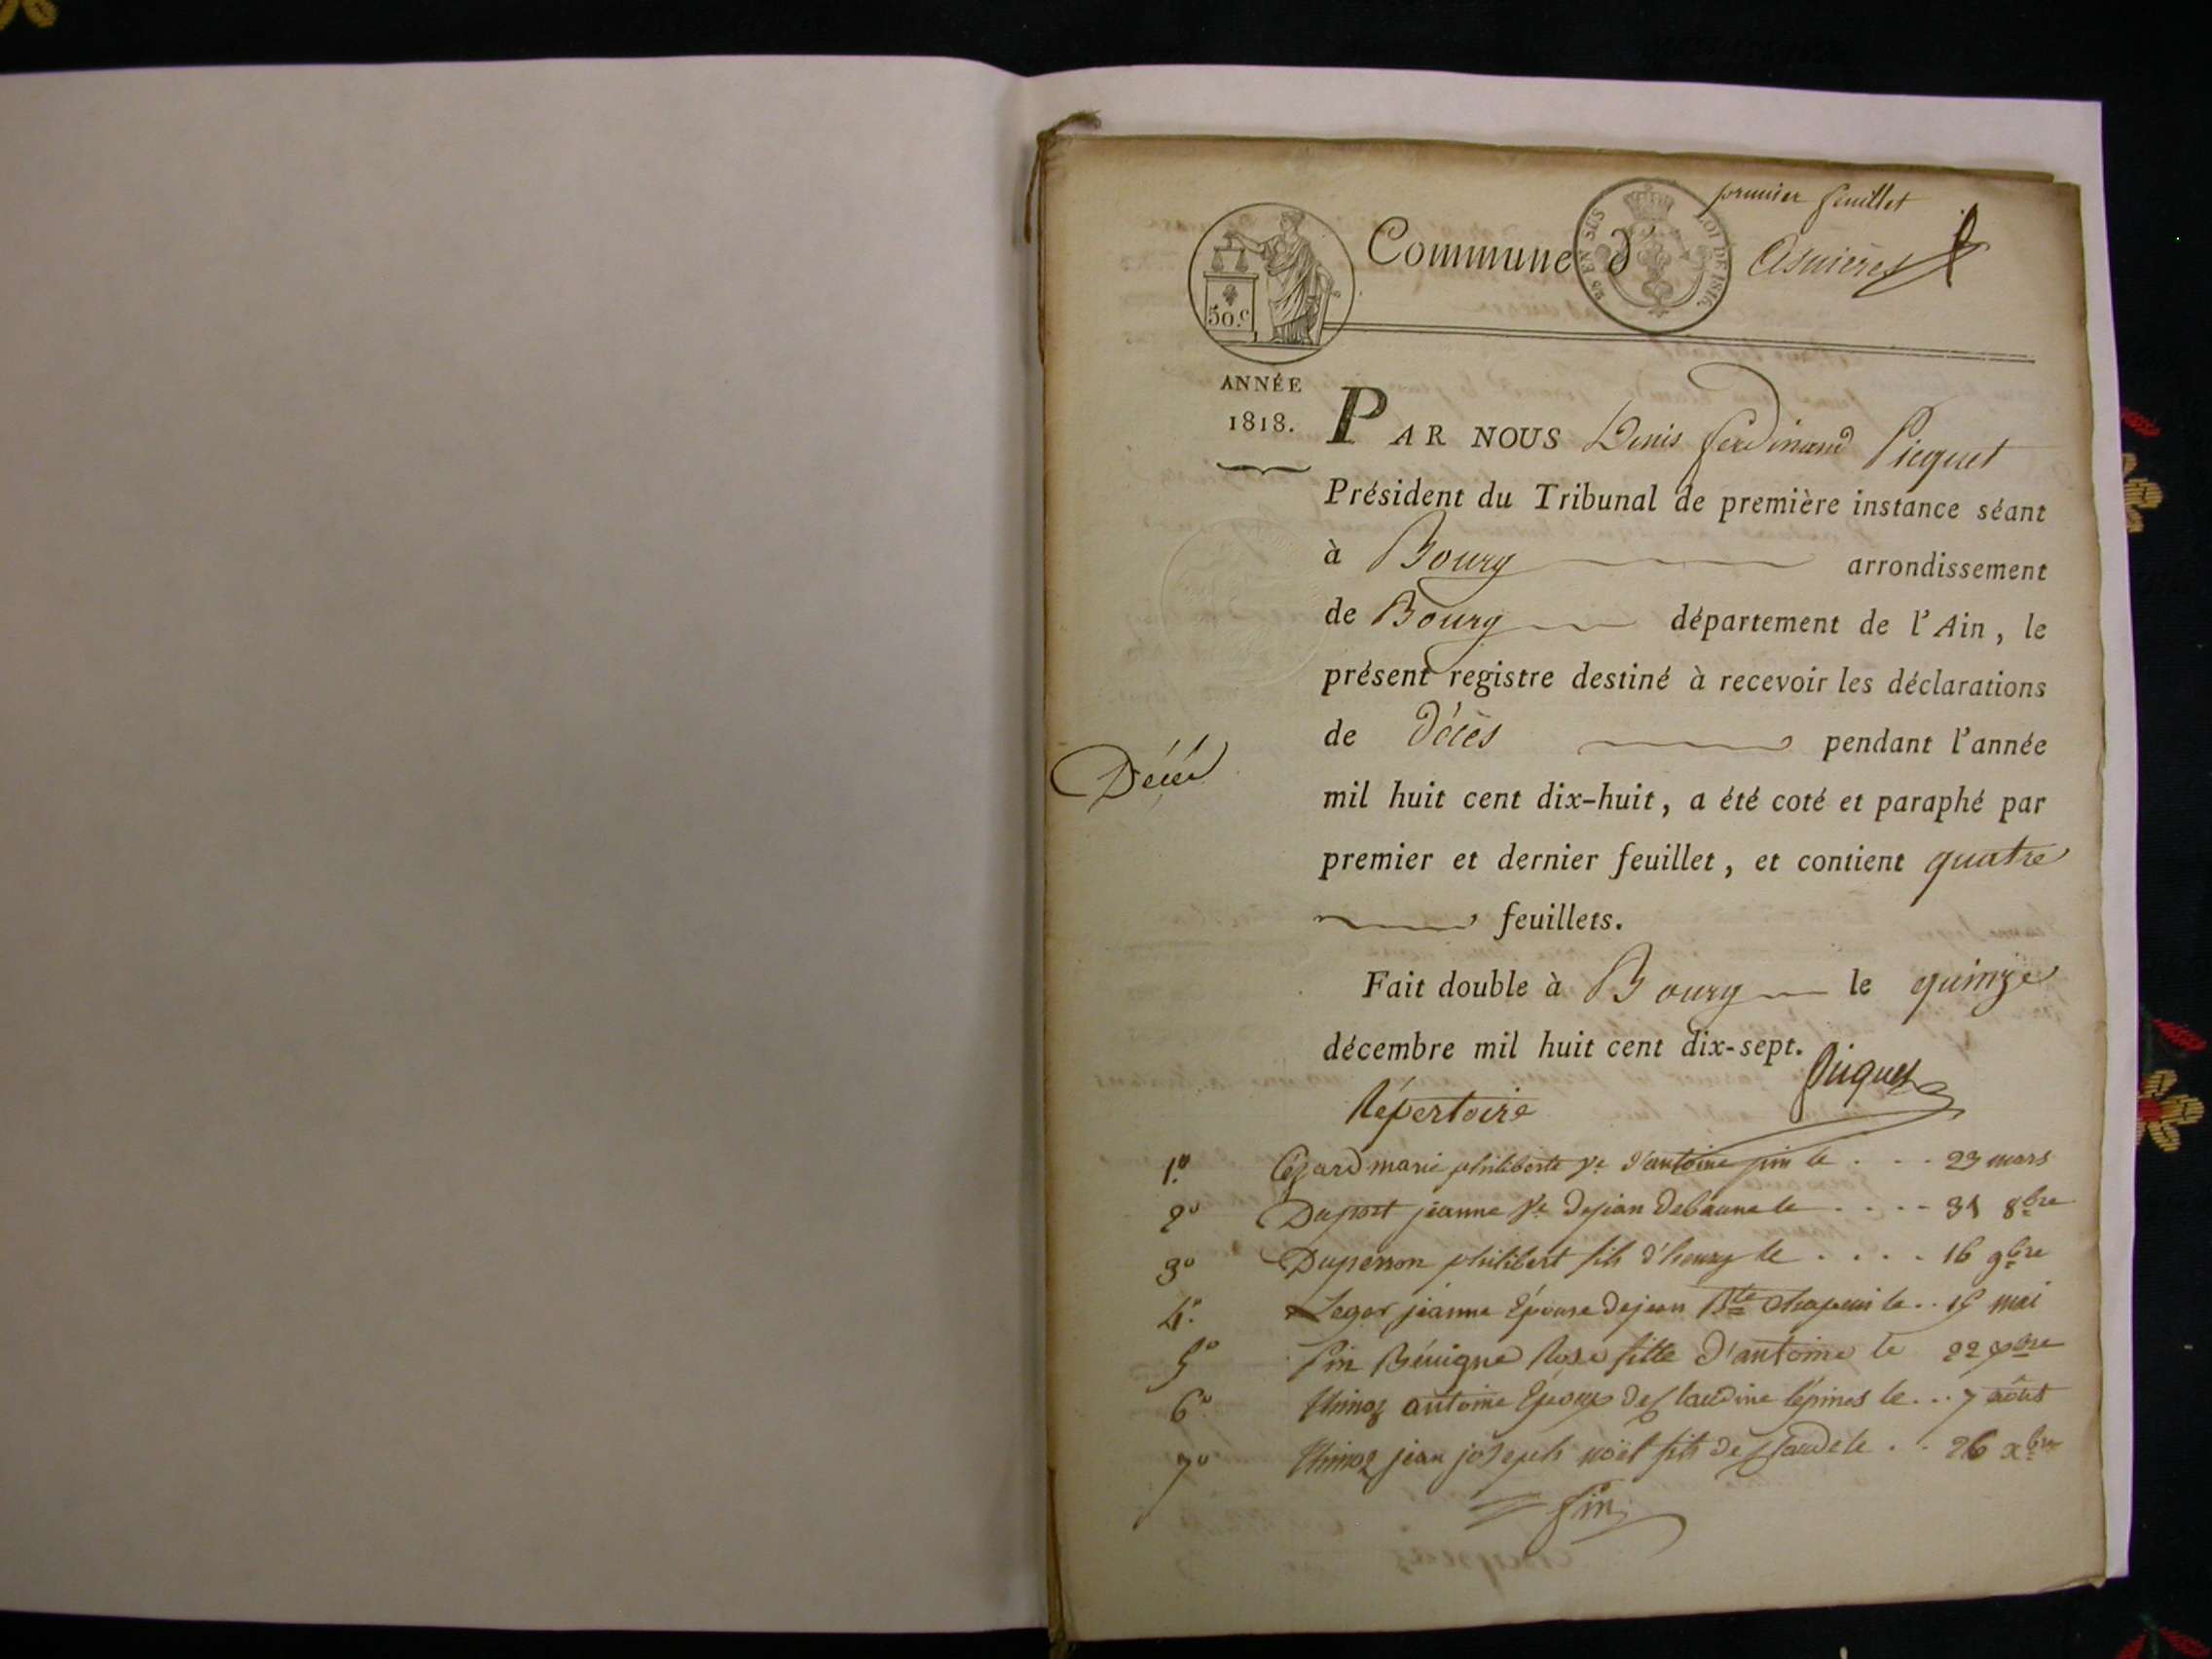 premier feuillet
Commune d' Asnieres
25 EN SUS
LOI DE 1816.
50.c
ANNÉE
1818.
PAR NOUS Denis ferdinand Picquet
Président du Tribunal de première instance séant
à Bourg arrondissement
de Bourg département de l'Ain, le
présent registre destiné à recevoir les déclarations
de décès pendant l'année
Décès
mil huit cent dix-huit, a été coté et paraphé par
premier et dernier feuillet, et contient quatre
feuillets.
Fait double à Bourg le quinze
décembre mil huit cent dix-sept.
Picquet
Répertoire
1.º marie philiberte Ve d'antoine fin le . . . 23 mars
2º Duport jeanne Ve de jean Debaune le . . . . 31 8bre
3º Duperron philibert fils d'henry le . . . . 16 9bre
4.º Leger jeanne Epouse de jean Bte Chapuis le . . 15 mai
5º fin Bénigne Rose fille d'antoine le 22 bre
6º antoine Epoux de Claudine lépines le . . . 7 août
7º jean joseph noël fils de Claude le . . 26 xbre
fin